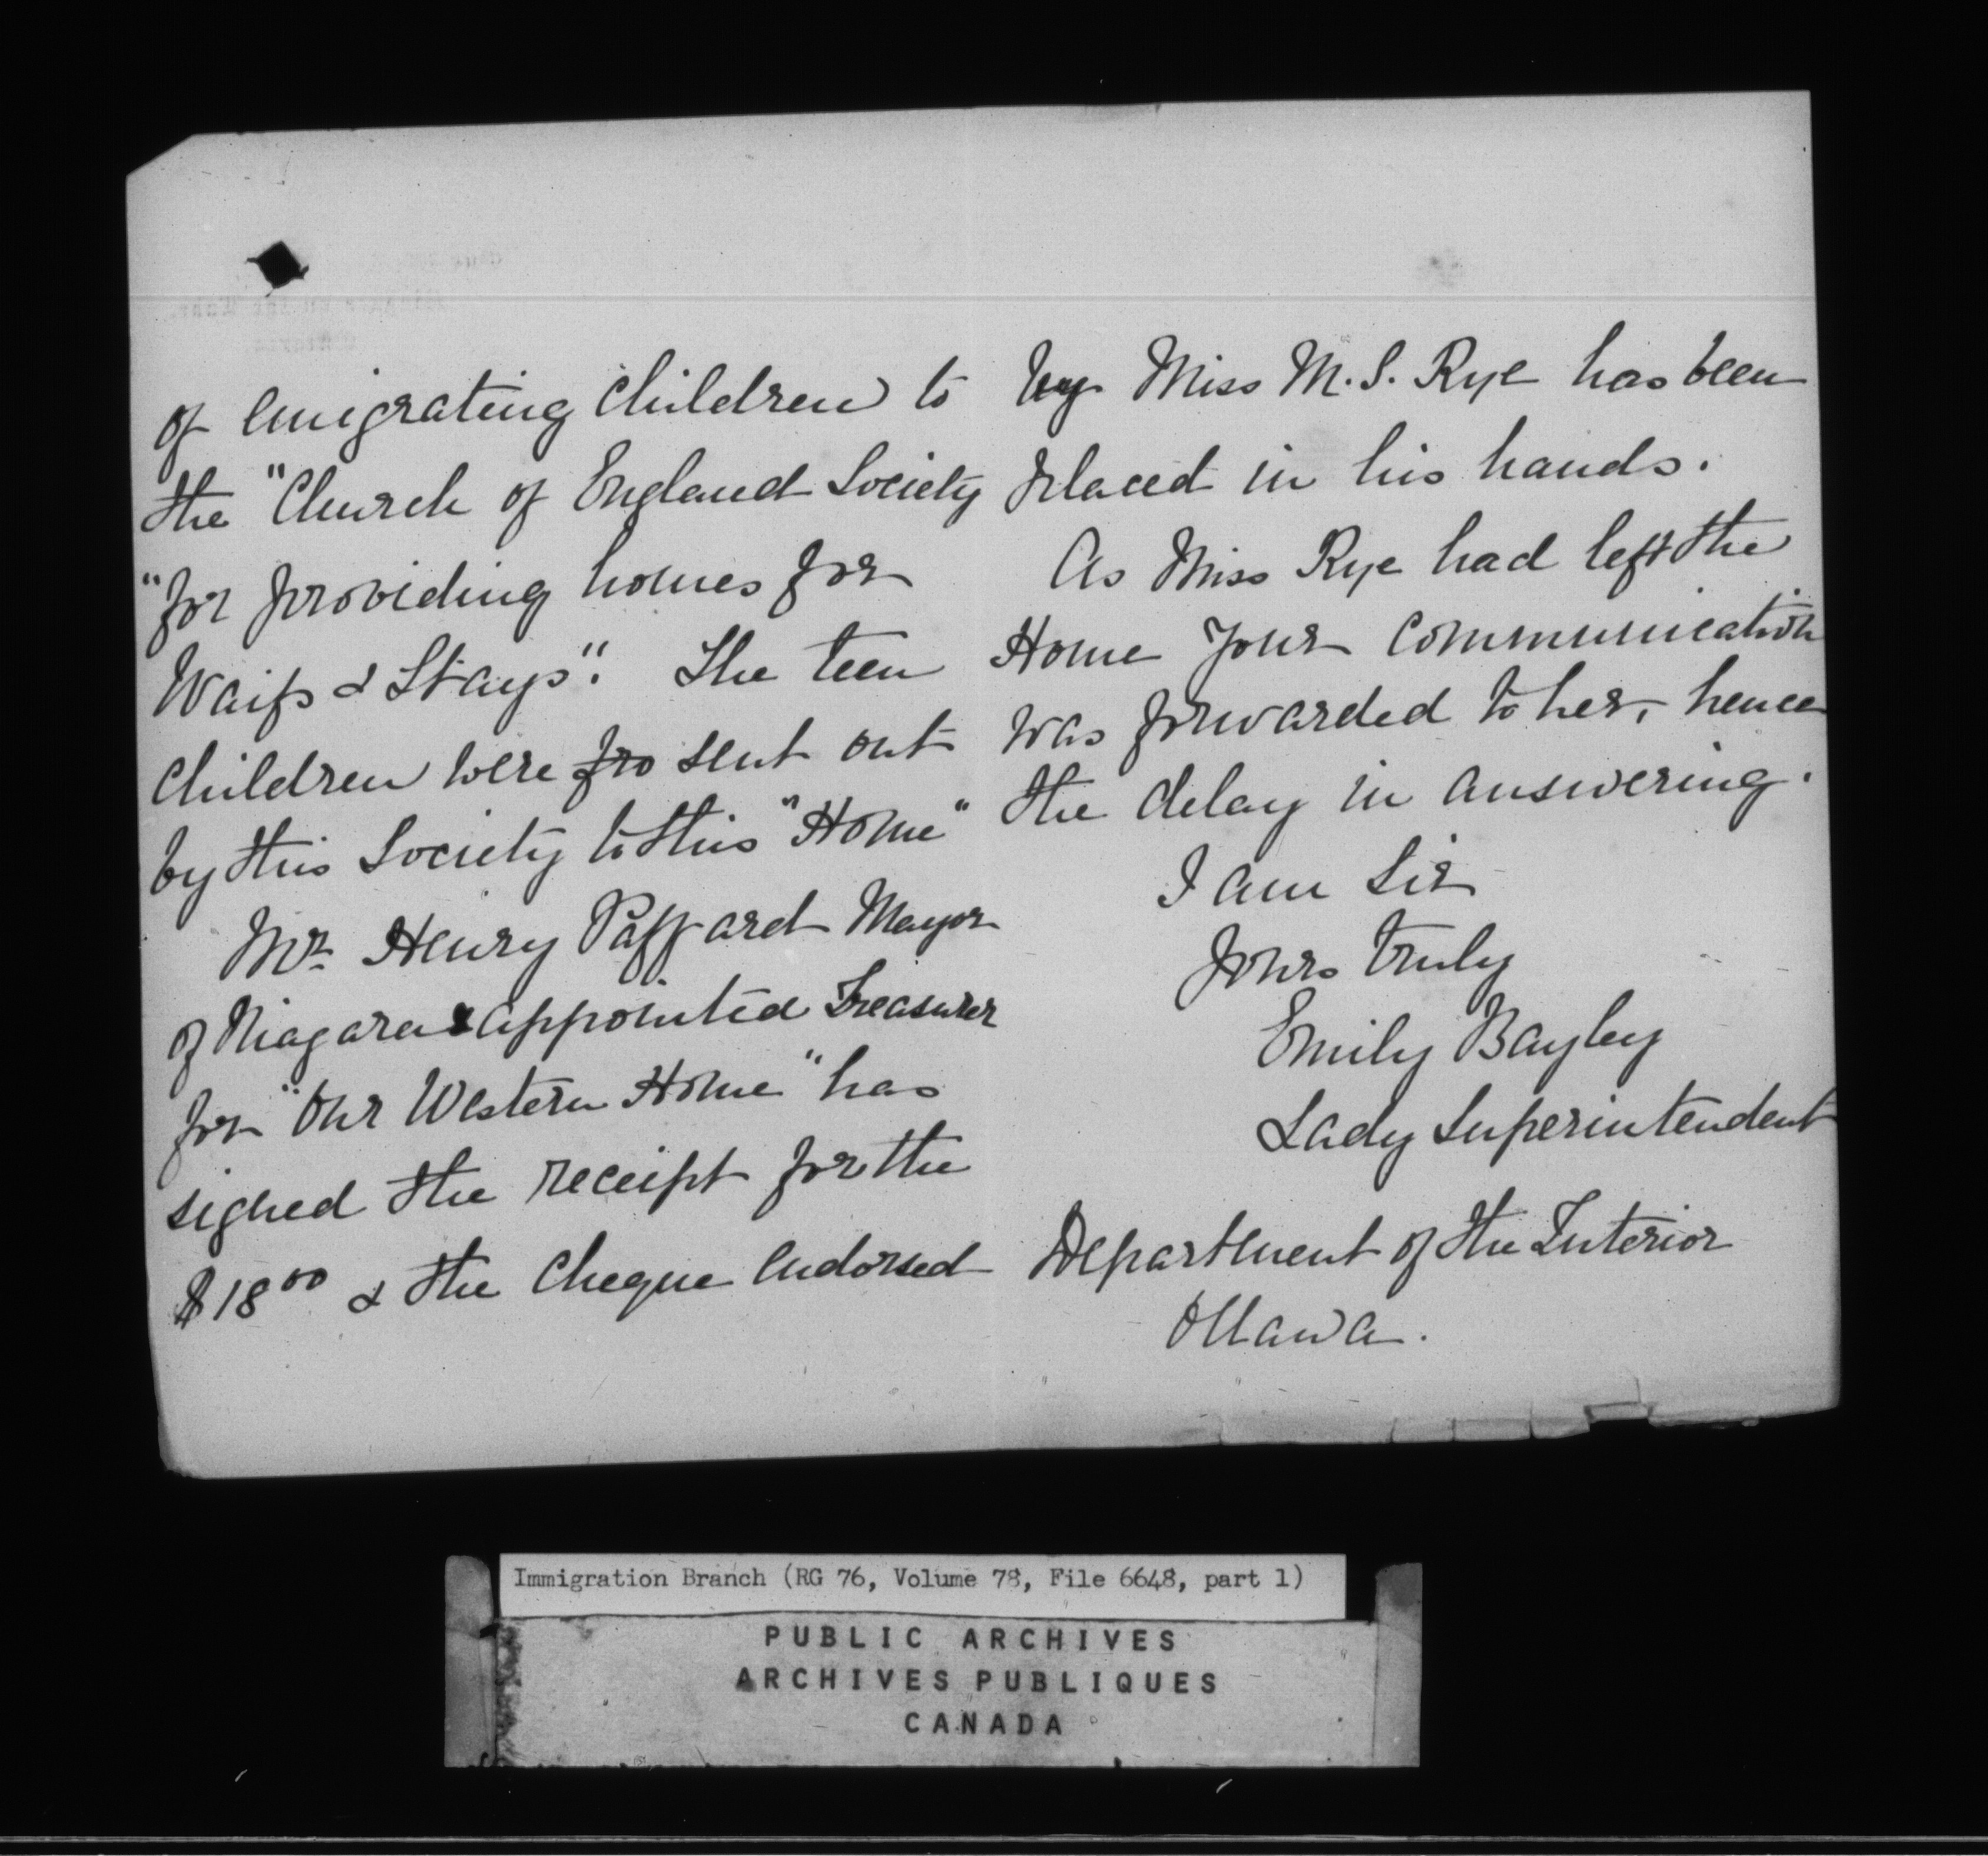 of emigrating children to
the "Church of England Society
"for providing homes for
Waifs & Strays". The teen
children were fro sent out
by this Society to this "Home"
Mr. Henry Paffard Mayor
of Niagara & appointed Treasurer
for "Our Western Home" has
signed the receipt for the
$18.00 & the cheque endorsed
by Miss M. S. Rye has been
placed in his hands.
As Miss Rye had left the
Home your communication
was forwarded to her, hence
the delay in answering.
I am Sir
Yours truly
Emily Bayley
Lady Superintendent
Department of the Interior
Ottawa.
Immigration Branch (RG 76, Volume 78, File 6648, part 1)
PUBLIC ARCHIVES
ARCHIVES PUBLIQUES
CANADA